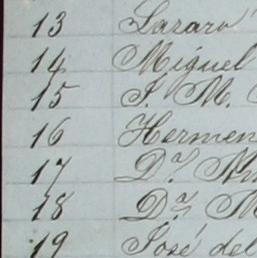 13 Lazaro
14 Miguel
15 J. M.
16 Hermen
17 D.ª
18 D.ª M
19 José del